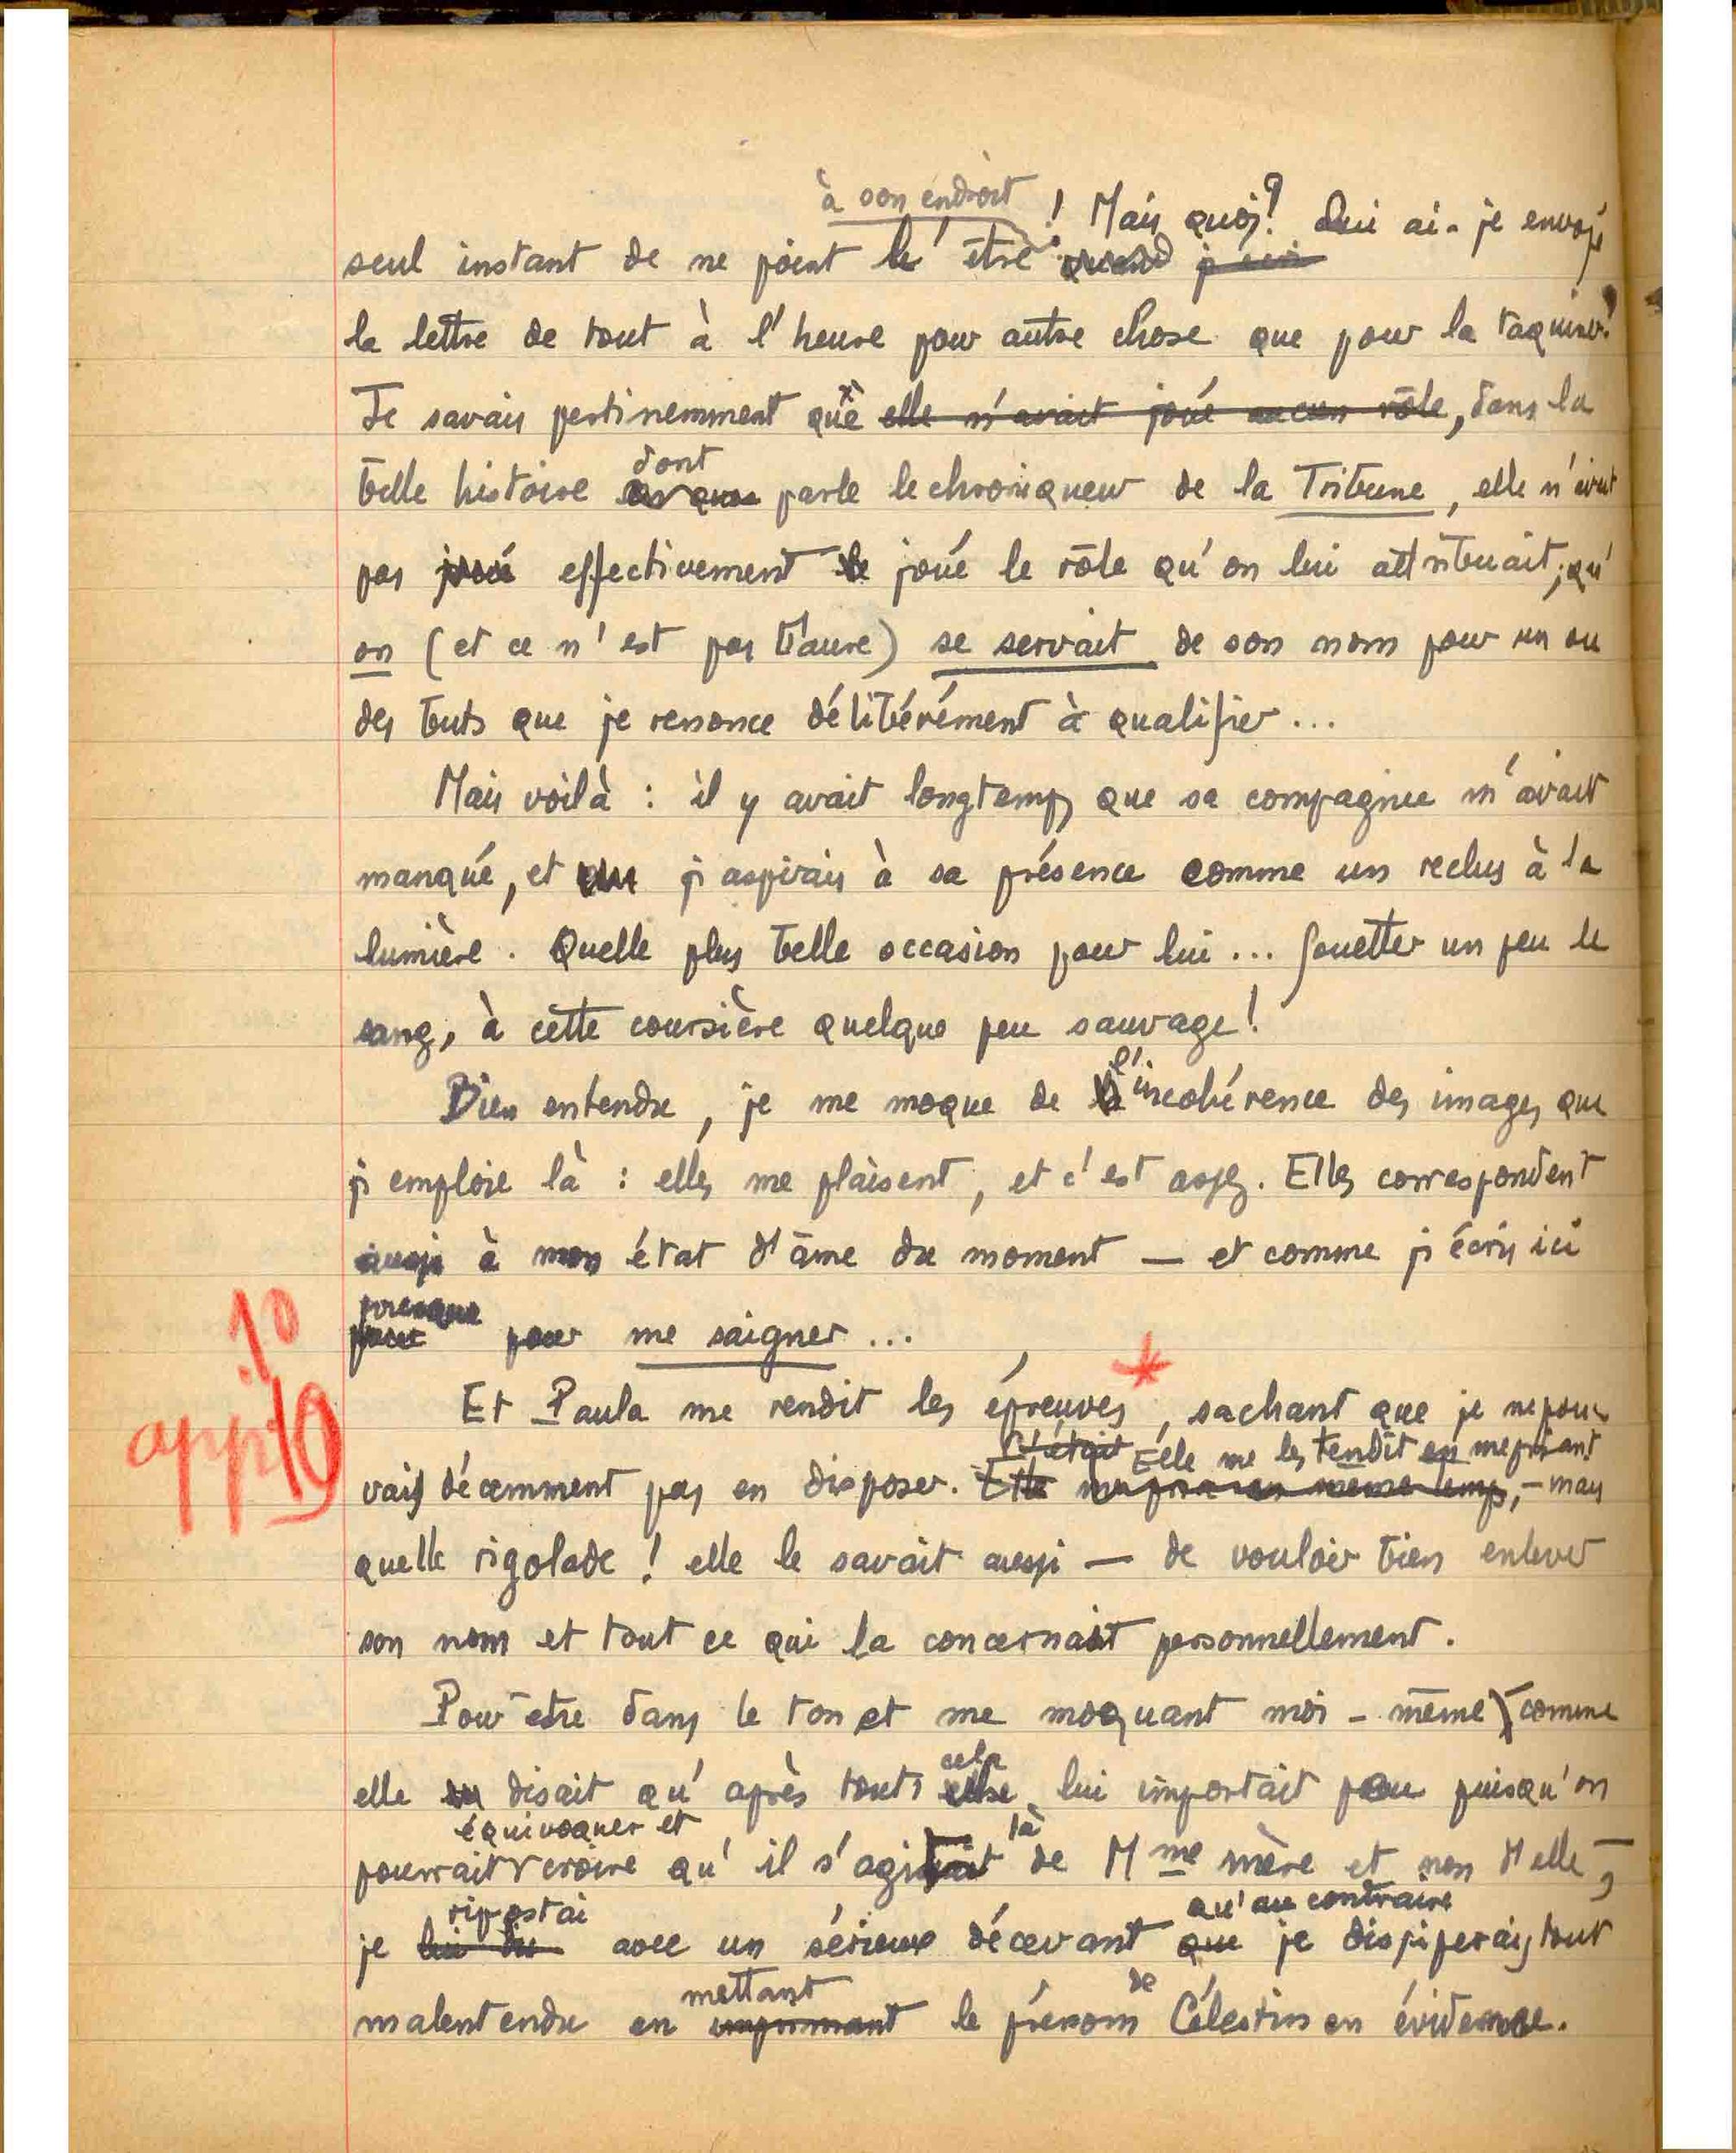 à son endroit ! Mais quoi? Lui ai-je envoyé
seul instant de ne point l'être
la lettre de tout à l'heure pour autre chose que pour la taquiner?
Je savais pertinemment que elle n'avait joué aucun rôle, dans la
dont
belle histoire parle le chroniqueur de la Tribune, elle n'avait
pas joué effectivement le joué le rôle qu'on lui attribuait; qu'
on (et ce n'est pas Faure) se servait de son nom pour un ou
des buts que je renonce délibérément à qualifier...
Mais voilà : il y avait longtemps que sa compagnie m'avait
manqué, et j'aspirais à sa présence comme un reclus à la
lumière. Quelle plus belle occasion pour lui... fouetter un peu le
sang, à cette coursière quelque peu sauvage!
l'in
Bien entendu, je me moque de incohérence des images que
j'emploie là : elles me plaisent, et c'est assez. Elles correspondent
aussi à mon état d'âme du moment — et comme j'écris ici
presque
pour pour me saigner...
1º
app 10
Et Paula me rendit les épreuves*, sachant que je ne pou-
C'était Elle me les tendit en me priant
vais décemment pas en disposer. Elle me pria en même temps, — mais
quelle rigolade ! elle le savait aussi — de vouloir bien enlever
son nom et tout ce qui la concernait personnellement.
Pour être dans le ton et me moquant moi-même comme
cela
elle disait qu'après tout, lui importait peu puisqu'on
équivoquer et là
pourrait croire qu'il s'agit de Mme mère et non d'elle,
ripostai qu'au contraire
je lui dis avec un sérieux décevant que je dissiperais tout
mettant de
malentendu en imprimant le prénom Célestin en évidence.